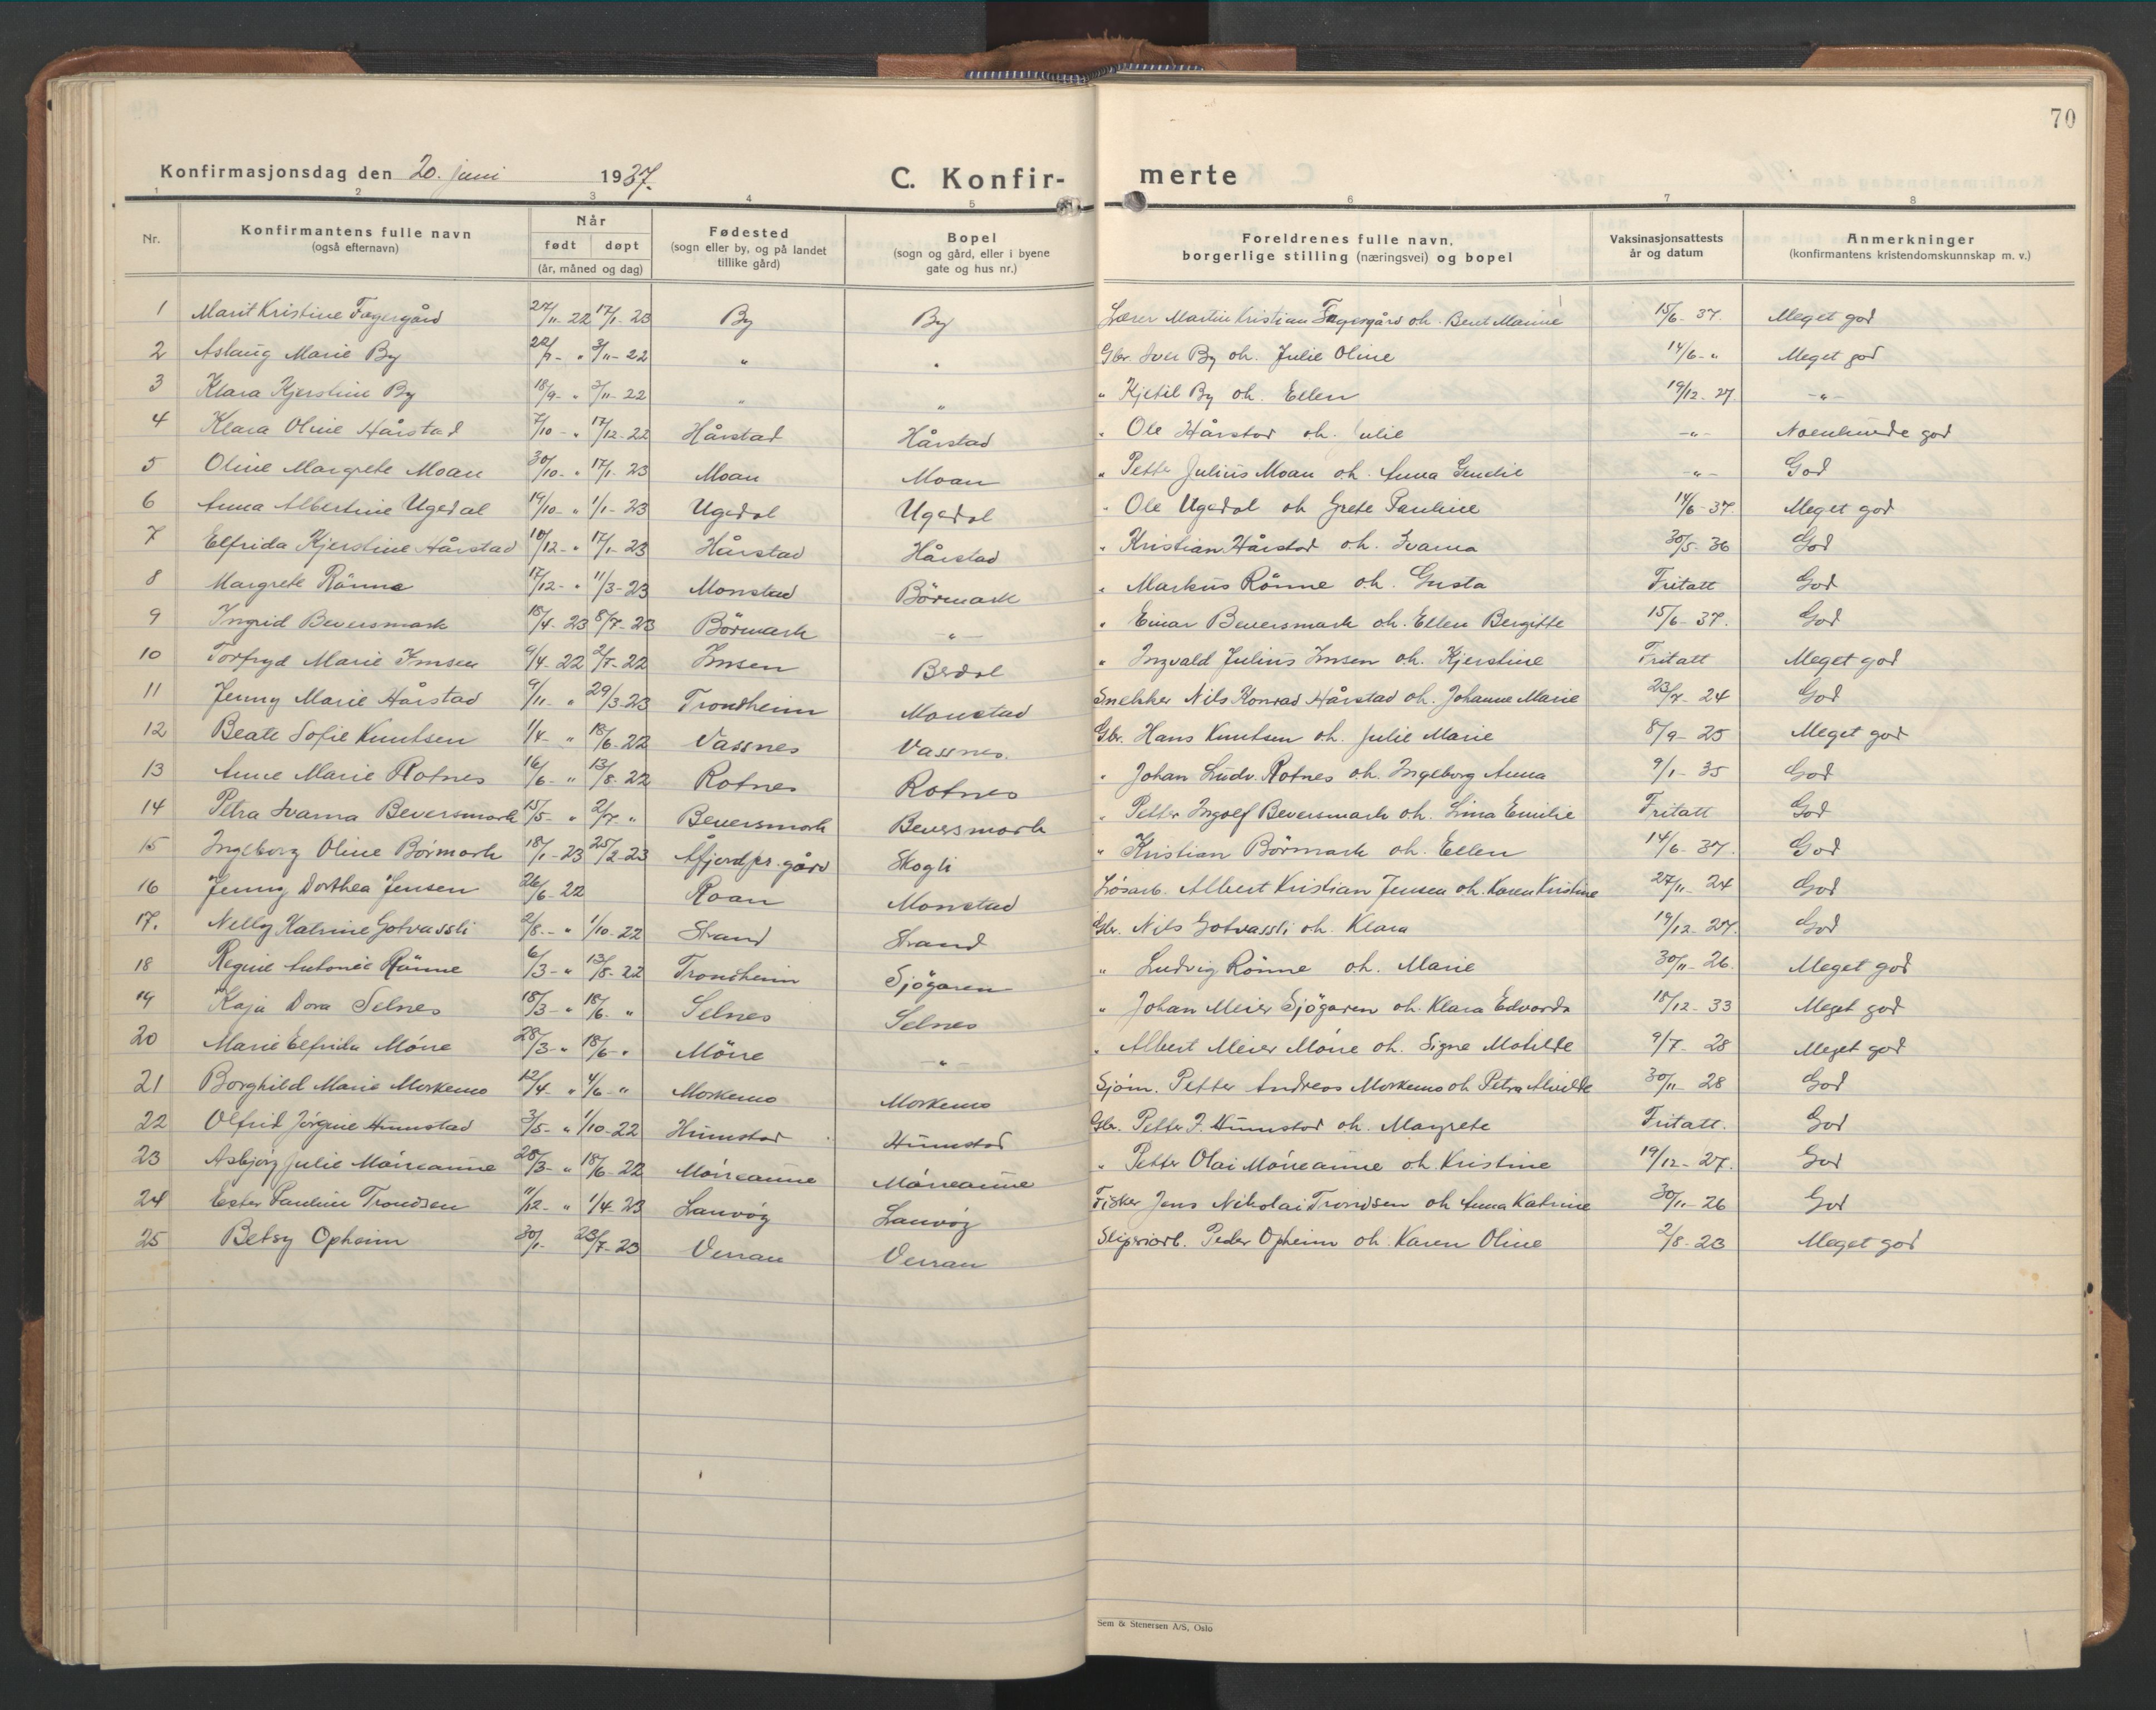 70
Konfirmasjonsdag den 20. juni 1937. C. Konfir- merte
1 2 3 4 5 6 7 8
Nr. Konfirmantens fulle navn (også efternavn) Når født døpt (år, måned og dag) Fødested (sogn eller by, og på landet tillike gård) Bopel (sogn og gård, eller i byene gate og hus nr.) Foreldrenes fulle navn, borgerlige stilling (næringsvei) og bopel Vaksinasjonsattests år og datum Anmerkninger (konfirmantens kristendomskunnskap m. v.)
1 Marit Kristine Fagergård 27/11-22 17/1-23 By By Lærer Martin Kristian Fagergård oh. Berit Marine 15/6-37. Meget god
2 Aslaug Marie By 22/7- " 3/11-22 " " Gbr. Iver By oh. Julie Oline 14/6- " Meget god
3 Klara Kjerstine By 18/9- " 3/11-22 " " " Kjetil By oh. Ellen 19/12-27 -"-
4 Klara Oline Hårstad 7/10- " 17/12-22 Hårstad Hårstad " Ole Hårstad oh. Julie -"- Noenlunde god
5 Oline Margrete Moan 30/10- " 17/1-23 Moan Moan " Petter Julius Moan oh. Anna -"- God
6 Anna Albertine Ugedal 19/10- " 1/1-23 Ugedal Ugedal " Ole Ugedal oh Grete Pauline 14/6-37. Meget god
7 Elfrida Kjerstine Hårstad 10/12- " 17/1-23 Hårstad Hårstad " Kristian Hårstad oh. Ivarna 30/5-36 God
8 Margrete Rønne 17/12- " 11/3-23 Monstad Börmark " Markus Rönne oh. Gusta Fritatt God
9 Ingrid Beversmark 18/4-23 8/7-23 Börmark -"- " Einar Beversmark oh. Ellen Bergitte 15/6-37. God
10 Torfryd Marie Imsen 9/4-22 2/7-22 Imsen Berdal " Ingvald Julius Imsen oh. Kjerstine Fritatt Meget god
11 Jenny Marie Hårstad 9/11- " 29/3-23 Trondheim Monstad Snekker Nils Konrad Hårstad oh. Johanne Marie 23/7-24 God
12 Beate Sofie Knutsen 1/4- " 18/6-22 Vassnes Vassnes. Gbr. Hans Knutsen oh. Julie Marie 8/9-25 Meget god
13 Anne Marie Rotnes 16/6- " 13/8-22 Rotnes Rotnes " Johan Ludv. Rotnes oh. Ingeborg Anna 9/1-35 God
14 Petra Ivarna Beversmark 15/5- " 2/7- " Beversmark Beversmark " Petter Ingolf Beversmark oh. Lina Emilie Fritatt God
15 Ingeborg Oline Börmark 18/1-23 25/2-23 Åfjord pr. gård Skogli " Kristian Börmark oh. Ellen 14/6-37. God
16 Jenny Dorthea Jensen 26/6-22 Roan Monstad Løsarb. Albert Kristian Jensen oh. Karen Kristine 27/11-24 God
17. Nelly Katrine Gotvassli 2/8- " 1/10-22 Strand Strand Gbr. Nils Gotvassli oh. Klara 19/12-27. God
18 Regine Antonie Rønne 6/3- " 13/8-22 Trondheim Sjögaren " Ludvig Rönne oh. Marie 30/11-26. Meget god
19 Kaja Dora Selnes 18/3- " 18/6. " Selnes Selnes " Johan Meier Sjögaren oh. Klara Edvarda 18/12-33 Meget god
20 Marie Elfrida Mörre 28/3- " 18/6- " Mörre -"- " Albert Meier Mörre oh. Signe Matilde 9/7-28 Meget god
21 Borghild Marie Morkemo 12/4- " 4/6- " Morkemo Morkemo Sjöm. Petter Andreas Morkemo oh Petra Alvilde 30/11-28 God
22 Olfrid Jörgine Humstad 3/5- " 1/10-22 Humstad Humstad Gbr. Petter J. Humstad oh. Margrete Fritatt. God
23 Asbjørg Julie Mörreaune 28/3- " 18/6-22 Mörreaune Mörreaune " Petter Olai Mörreaune oh. Kristine 19/12-27. God
24 Ester Pauline Trondsen 11/12- " 1/4-23 Lauvöy Lauvöy Fisker Jens Nikolai Trondsen oh Anna Katrine 30/11-26 God
25 Betsy Opheim 30/1- 23/7-23 Verran Verran Sliperiarb. Peder Opheim oh. Karen Oline 2/8-23 Meget god
Sem & Stenersen A/S, Oslo